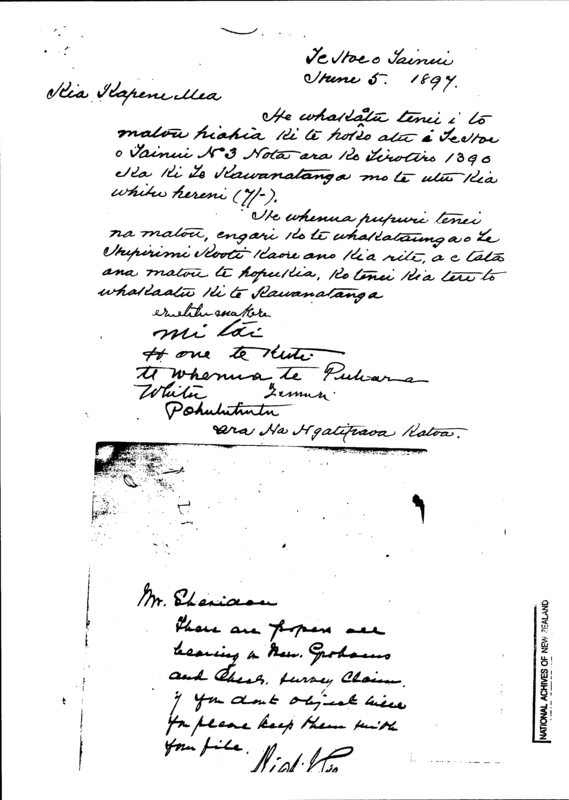 Te Hoe o Tainui
Hune 5. 1897.
Kia Kapene Mea
He whakàtu tenei i to
matou hiahia ki te hoko atu i Te Hoe
o Tainui No 3 Nota ara ko Tirotiro 1390
eka ki Te Kawanatanga mo te utu kia
whitu hereni (7/-).
He whenua pupuri tenei
na matou, engari ko te whakataunga o Te
Hupirimi Kooti kaore ano kia rite, a e tata
ana matou te hopukia, ko tenei kia tere to
whakaatu ki te Kawanatanga
Mi
Hone te
te Whenua te Puhara
Whitu
Pohutuhutu
ara Na Ngatipaoa Katoa.
Mr. Sheridan
There are papers all
bearing on
and survey claim.
if you dont object will
you please keep them with
your file.
NATIONAL ACHIVES OF NEW ZEALAND